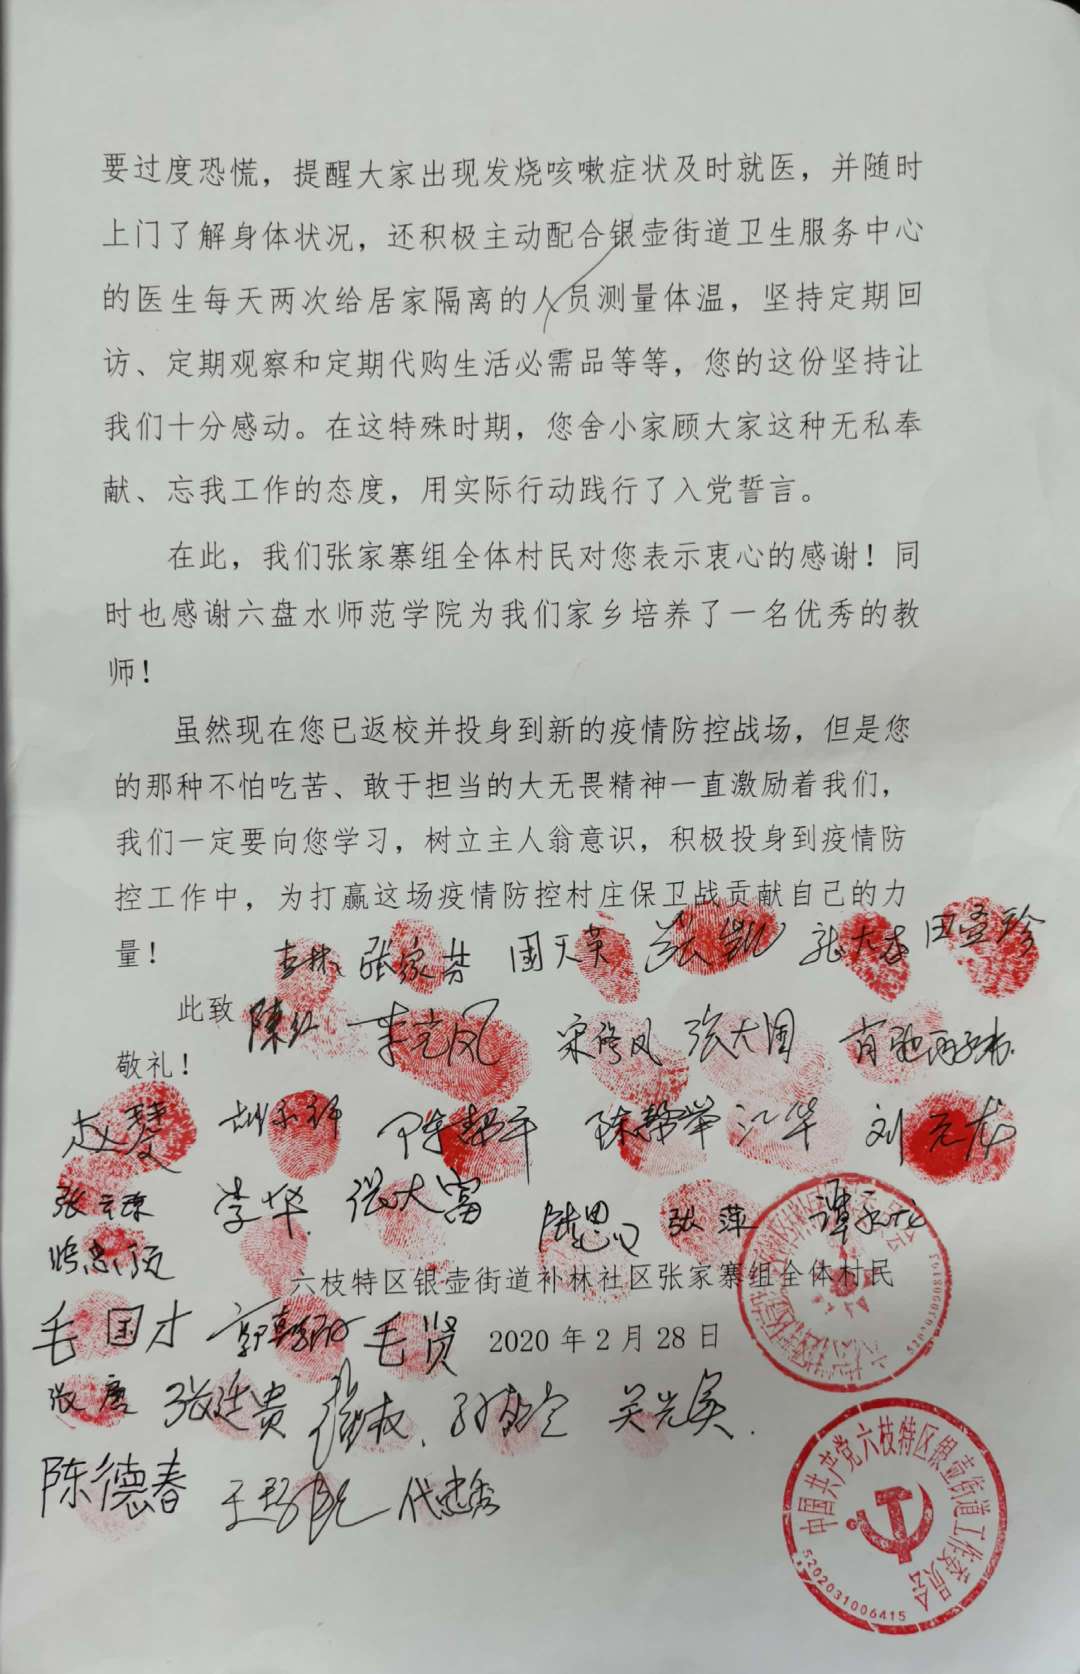 要过度恐慌，提醒大家出现发烧咳嗽症状及时就医，并随时
上门了解身体状况，还积极主动配合银壶街道卫生服务中心
的医生每天两次给居家隔离的人员测量体温，坚持定期回
访、定期观察和定期代购生活必需品等等，您的这份坚持让
我们十分感动。在这特殊时期，您舍小家顾大家这种无私奉
献、忘我工作的态度，用实际行动践行了入党誓言。
在此，我们张家寨组全体村民对您表示衷心的感谢！同
时也感谢六盘水师范学院为我们家乡培养了一名优秀的教
师！
虽然现在您已返校并投身到新的疫情防控战场，但是您
的那种不怕吃苦、敢于担当的大无畏精神一直激励着我们，
我们一定要向您学习，树立主人翁意识，积极投身到疫情防
控工作中，为打赢这场疫情防控村庄保卫战贡献自己的力
量！
张家芬 张凯
此致
陈红 张大国
敬礼！
陈帮平 陈帮举 江华 刘元龙
李华 张大富 张萍 谭永龙
六枝特区银壶街道补林社区张家寨组全体村民
毛国才 毛贤
2020年2月28日
张廷贵
陈德春
中国共产党六枝特区银壶街道工作委员会
5202031006415